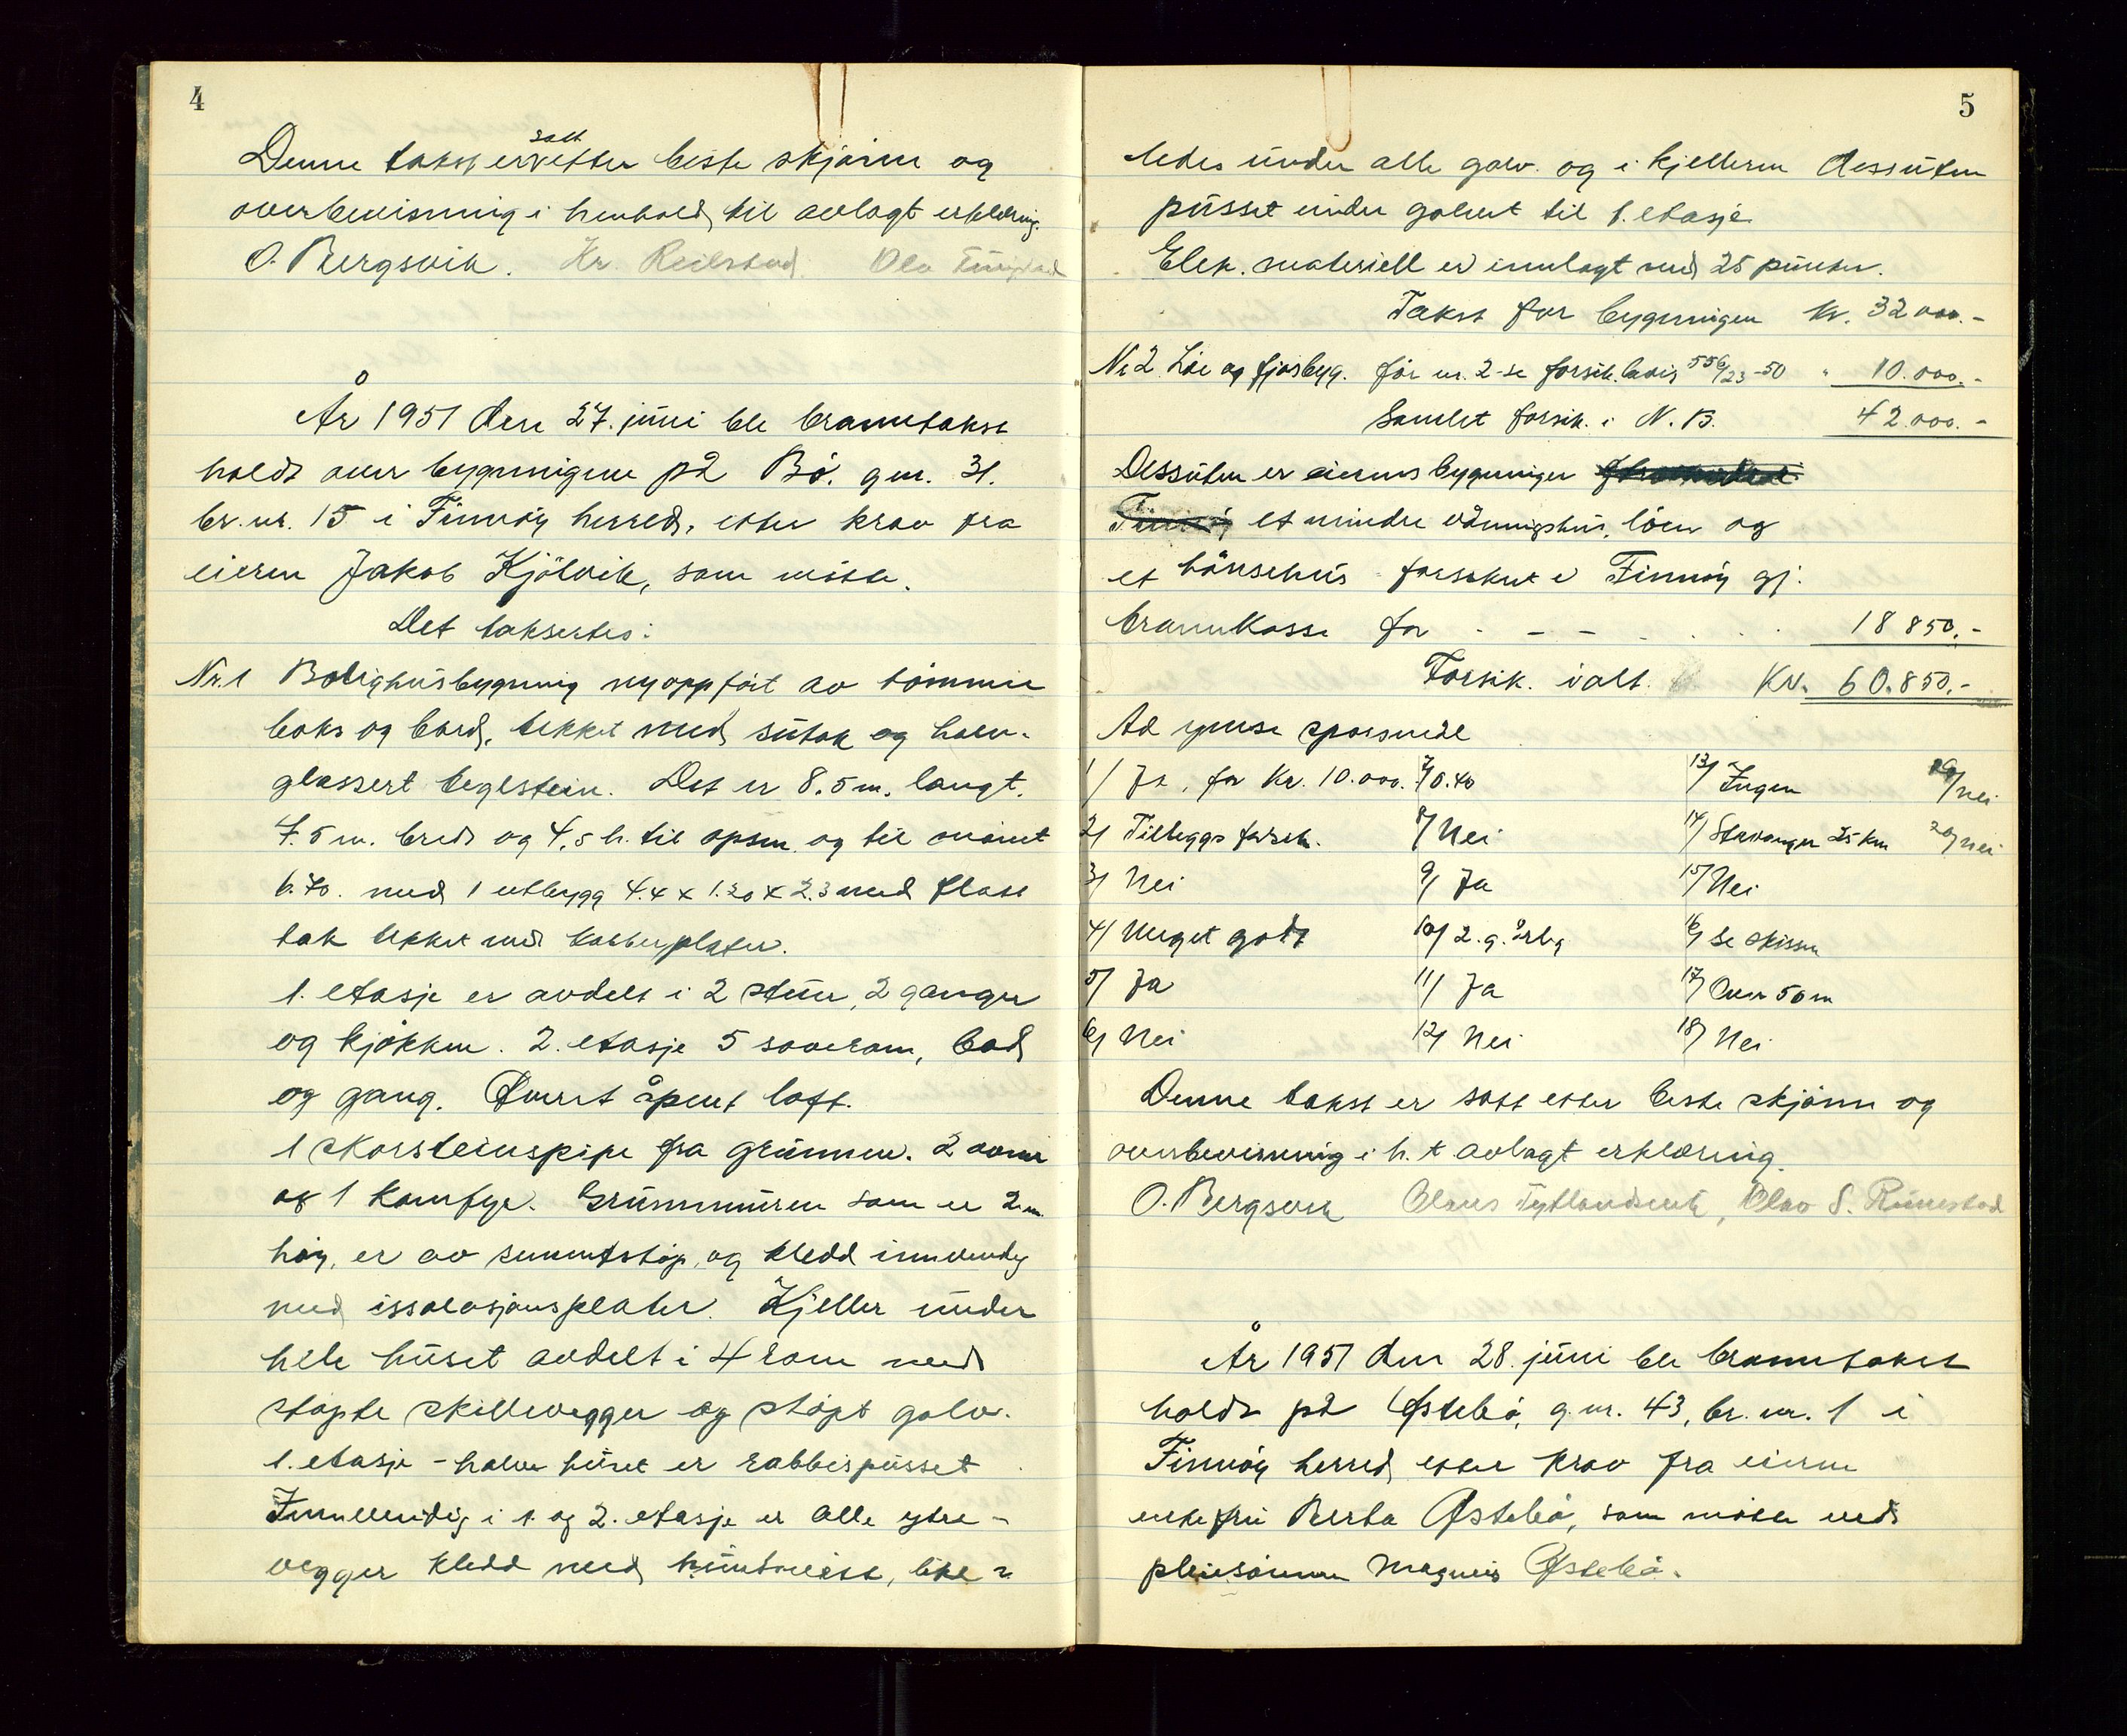 4
Denne takst er satt etter beste skjønn og
overbevisning i henhold til avlagt erklæring.
O. Bergsvik. Kr. Reilstad. Ola
År 1951 den 27. juni ble branntakst
holdt over bygningene på Bø. gnr. 31.
br. nr. 15 i Finnøy herred, etter krav fra
eieren Jakob Kjølvik, som møtte.
Det taksertes:
Nr. 1 Bolighusbygning nyoppført av tømmer
boks og bord, tekket med sutak og halv-
glassert teglstein. Det er 8.5 m. langt,
7.5 m. bred og 4,5 h. til opsen og til mønet
6.70. med 1 utbygg 4.4 x 1.20 x 2.3 med flatt
tak tekket med kobberplater.
1. etasje er avdelt i 2 stuer, 2 ganger
og kjøkken. 2. etasje 5 soverom, bad
og gang. Øverst åpent loft.
1 skorsteinspipe fra grunnen. 2 ovner
og 1 komfyr. Grunnmuren som er 2 m.
høy, er av sementstøp, og kledd innvendig
med issolasjonsplater. Kjeller under
hele huset avdelt i 4 rom med
støpte skillevegger og støpt golv.
1. etasje - halve huset er rabbispusset
Innvendig i 1. og 2. etasje er alle ytre-
vegger kledd med huntonitt, like-
5
ledes under alle golv. og i kjelleren dessuten
pusset under golvet til 1. etasje.
Elek. materiell er innlagt med 25 punkter.
Takst for bygningen Kr. 32 000.-
Nr 2. Løe og fjøsbyg. før nr. 2 - se forsik. bevis 556/23-50 " 10.000.-
Samlet forsik. i N. B. 42.000.-
Dessuten er eierens bygninger
Finnøy et mindre våningshus, løen og
et hønsehus forsikret i Finnøy gj.
brannkasse for - - - . . . 18 850.-
Forsik. ialt. Kr. 60.850.-
Ad spørsmål
1/ Ja, for Kr. 10.000. 7/ 0.40 13/ Ingen 19/ nei
2/ Tilleggsforsik. 8/ Nei 14/ Stavanger 25 km 20/ nei
3/ Nei 9/ Ja 15/ Nei
4/ Meget godt 10/ 2. g. årleg 16/ Se skissen
5/ Ja 11/ Ja 17/ Over 50 m
6/ Nei 12/ Nei 18/ Nei
Denne takst er satt etter beste skjønn og
overbevisning i h. t. avlagt erklæring.
O. Bergsvik Olaus Tytlandsvik, Olav S. Runestad
År 1951 den 28. juni ble branntakst
holdt på Østebø, g. nr. 43, br. nr. 1 i
Finnøy herred etter krav fra eieren
enkefru Berta Østebø, som møtte ved
pleiesønnen Magnus Østebø.